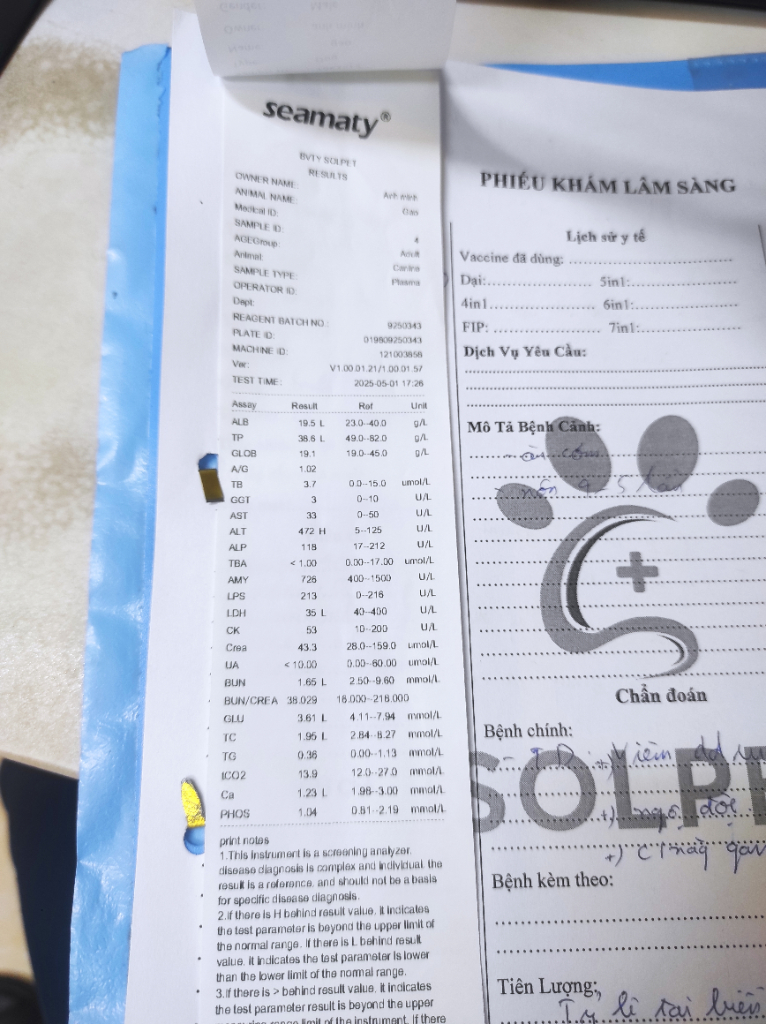 seamaty®
BVTY SOLPET
RESULTS
OWNER NAME: Anh minh
ANIMAL NAME:
Medical ID:
SAMPLE ID: 4
AGEGroup: Adult
Animal: Canine
SAMPLE TYPE: Plasma
OPERATOR ID:
Dept:
REAGENT BATCH NO.: 9250343
PLATE ID: 019809250343
MACHINE ID: 121003858
Ver: V1.00.01.21/1.00.01.57
TEST TIME: 2025-05-01 17:26
Assay Result Ref Unit
ALB 19.5 L 23.0--40.0 g/L
TP 38.6 L 49.0--82.0 g/L
GLOB 19.1 19.0--45.0 g/L
A/G 1.02
TB 3.7 0.0--15.0 umol/L
GGT 3 0--10 U/L
AST 33 0--50 U/L
ALT 472 H 5--125 U/L
ALP 118 17--212 U/L
TBA < 1.00 0.00--17.00 umol/L
AMY 726 400--1500 U/L
LPS 213 0--216 U/L
LDH 35 L 40--400 U/L
CK 53 10--200 U/L
Crea 43.3 28.0--159.0 umol/L
UA < 10.00 0.00--60.00 umol/L
BUN 1.65 L 2.50--9.60 mmol/L
BUN/CREA 38.029 16.000--218.000
GLU 3.61 L 4.11--7.94 mmol/L
TC 1.95 L 2.84--8.27 mmol/L
TG 0.36 0.00--1.13 mmol/L
tCO2 13.9 12.0--27.0 mmol/L
Ca 1.23 L 1.98--3.00 mmol/L
PHOS 1.04 0.81--2.19 mmol/L
print notes
1.This instrument is a screening analyzer.
disease diagnosis is complex and individual. the
result is a reference. and should not be a basis
for specific disease diagnosis.
2.if there is H behind result value, it indicates
the test parameter is beyond the upper limit of
the normal range. if there is L behind result
value. it indicates the test parameter is lower
than the lower limit of the normal range.
3.if there is > behind result value. it indicates
the test parameter result is beyond the upper
range limit of the instrument. If there
PHIẾU KHÁM LÂM SÀNG
Lịch sử y tế
Vaccine đã dùng:
Dại: 5in1:
4in1 6in1:
FIP: 7in1:
Dịch Vụ Yêu Cầu:
Mô Tả Bệnh Cảnh:
- ăn cơm
- nôn 4-5 lần
Chẩn đoán
Bệnh chính:
SOLP
+) Viêm
+) ngộ độc
+)
Bệnh kèm theo:
Tiên Lượng: